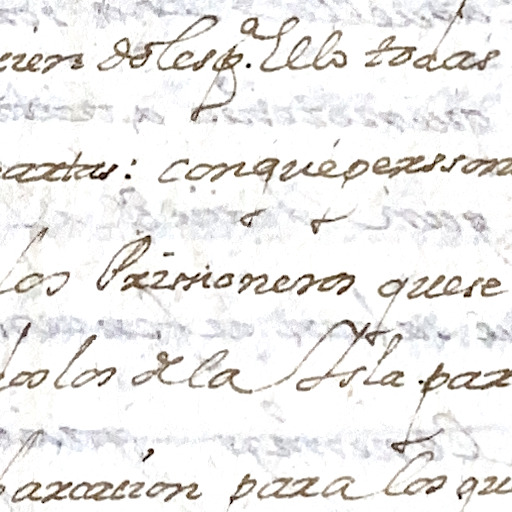 ciendoles p.ª Ello todas
partas: conque persson
los Prisioneros quese
los los dela Isla par
barcacion para los qu